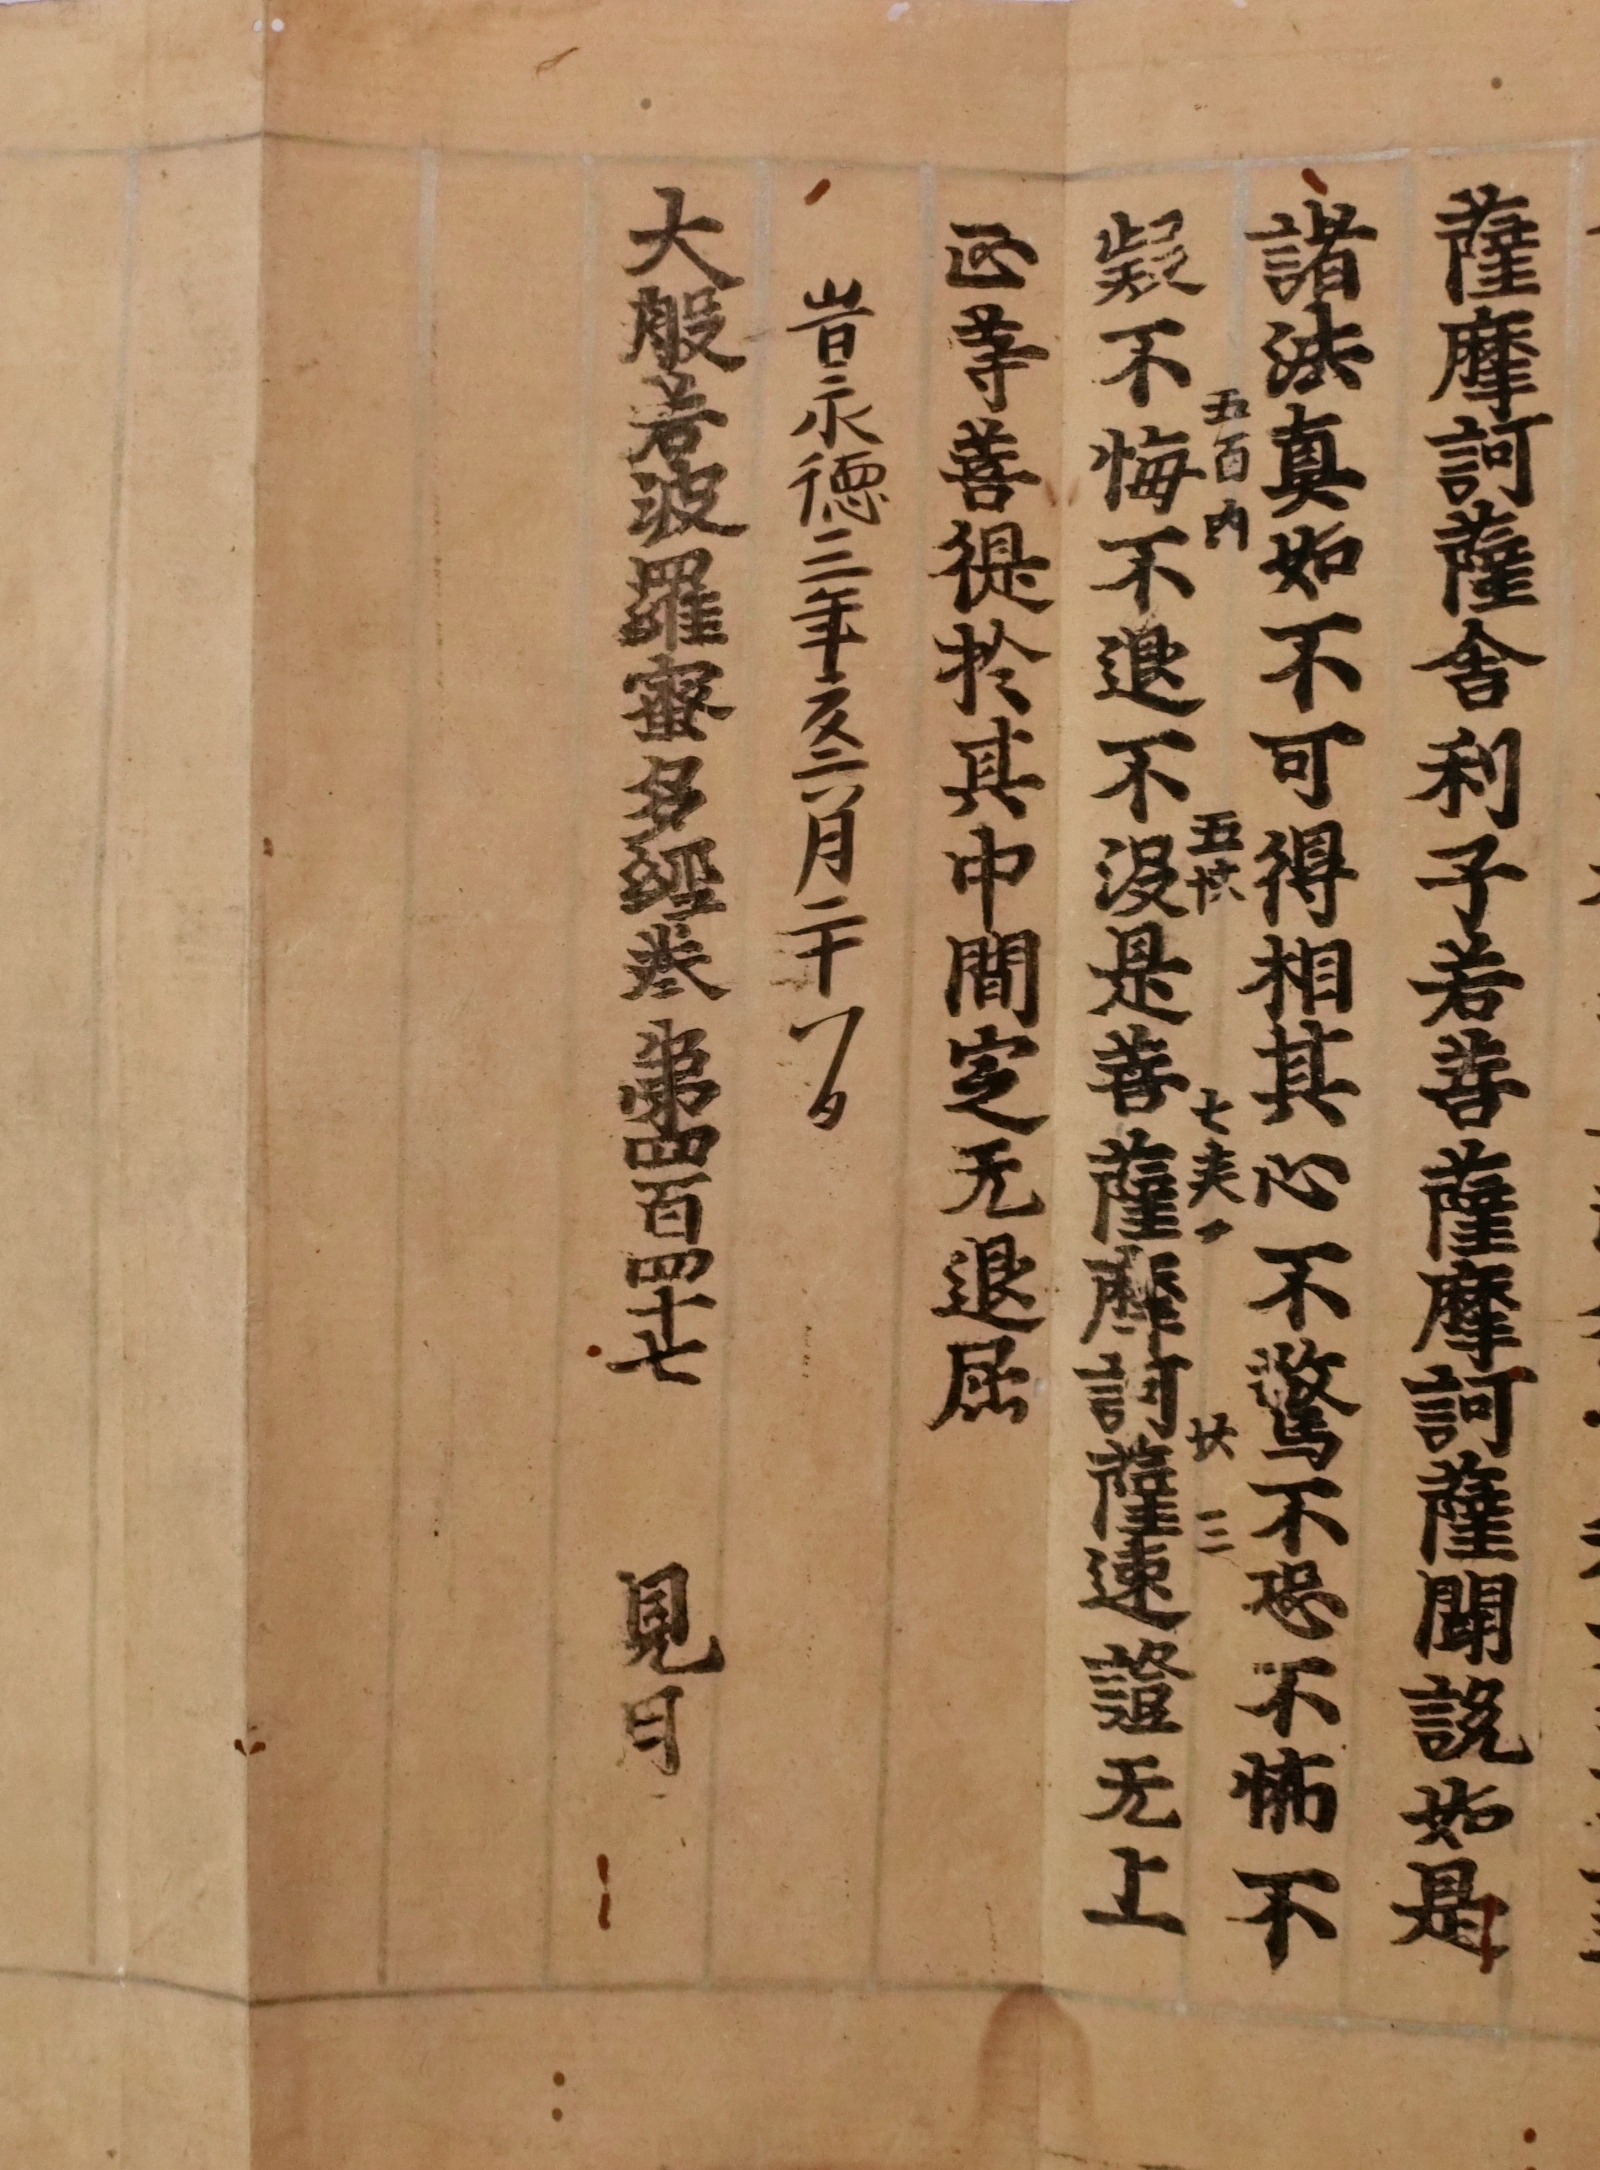 薩摩訶薩舍利子若菩薩摩訶薩聞説如是
諸法真如不可得相其心不驚不恐不怖不
五百内 五帙 七夾一 廿 三
疑不悔不退不没是菩薩摩訶薩速證无上
正等菩提於其中間定无退屈
旹永徳三年亥六月二十
大般若波羅蜜多經巻第四百四十七 見日